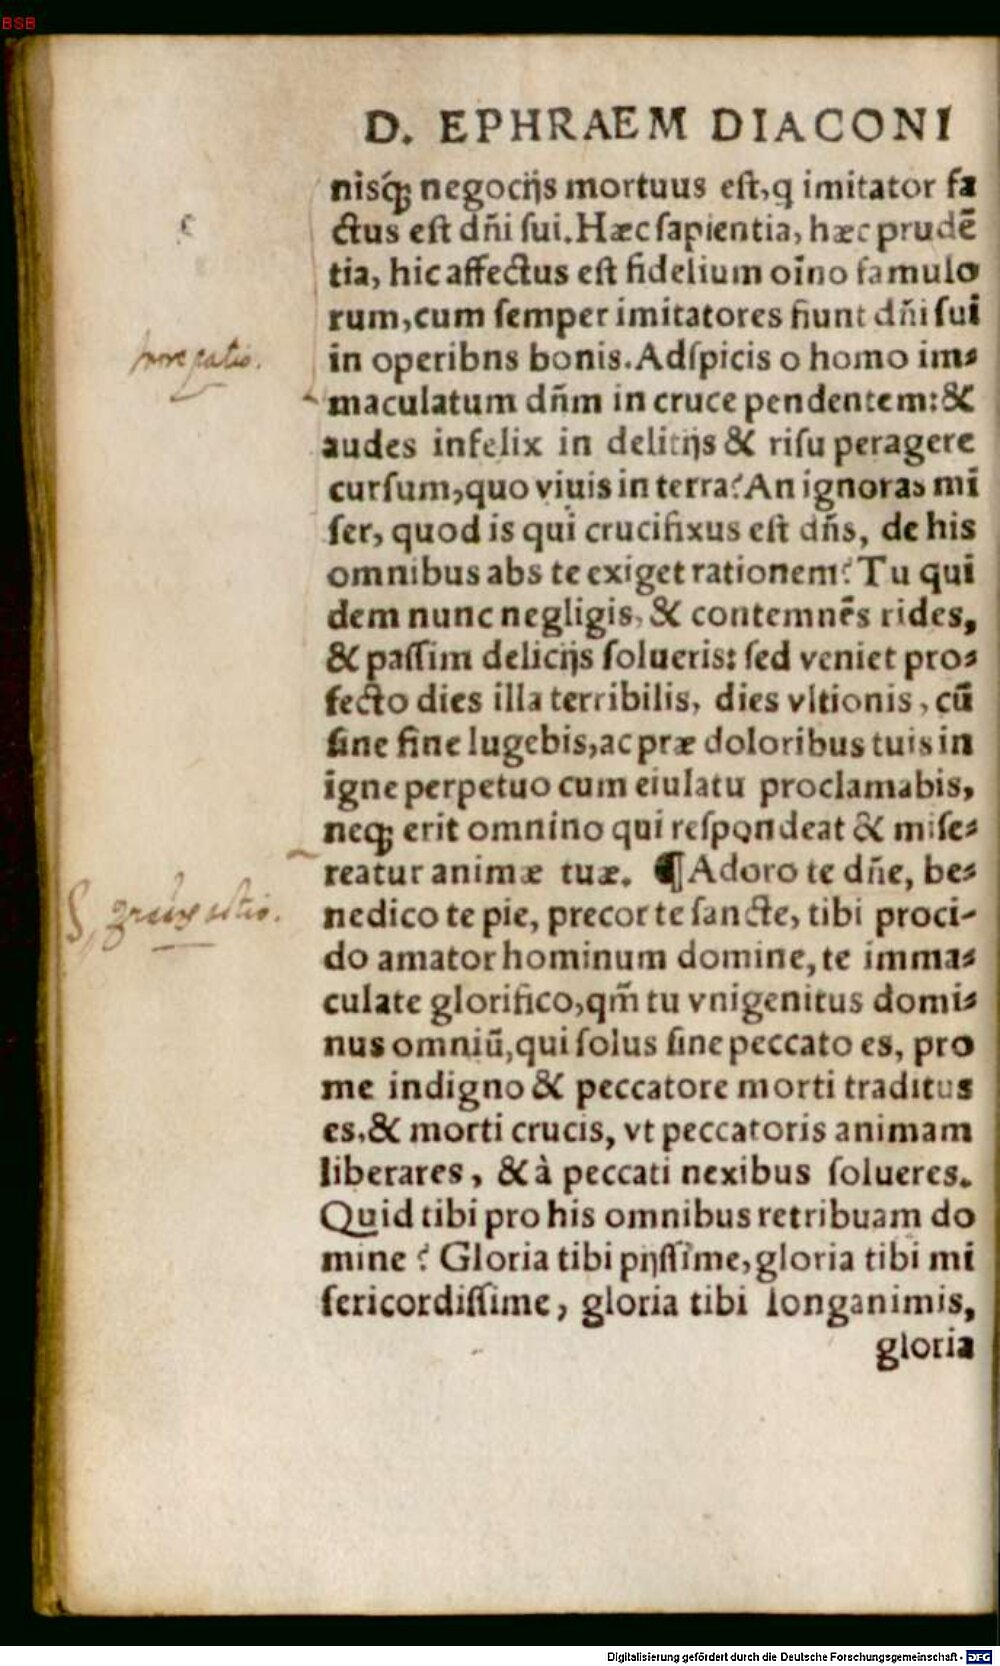 BSB
D. EPHRAEM DIACONI
nisq́ꝫ negocijs mortuus est, q imitator fa
ctus est dñi sui. Hæc sapientia, hæc prudē
tia, hic affectus est fidelium oīno famulo
rum, cum semper imitatores fiunt dñi sui
in operibns bonis. Adspicis o homo im⸗
maculatum dñm in cruce pendentem: &
audes infelix in delitijs & risu peragere
cursum, quo viuis in terra? An ignoras mi
ser, quod is qui crucifixus est dñs, de his
omnibus abs te exiget rationem? Tu qui
dem nunc negligis, & contemnēs rides,
& passim delicijs solueris: sed veniet pro⸗
fecto dies illa terribilis, dies vltionis, cū
sine fine lugebis, ac præ doloribus tuis in
igne perpetuo cum eiulatu proclamabis,
neqꝫ erit omnino qui respondeat & mise⸗
reatur animæ tuæ. ¶ Adoro te dñe, be⸗
nedico te pie, precor te sancte, tibi proci-
do amator hominum domine, te imma⸗
culate glorifico, qm̄ tu vnigenitus domi⸗
nus omniū, qui solus sine peccato es, pro
me indigno & peccatore morti traditus
es, & morti crucis, vt peccatoris animam
liberares, & à peccati nexibus solueres.
Quid tibi pro his omnibus retribuam do
mine? Gloria tibi pijssime, gloria tibi mi
sericordissime, gloria tibi longanimis,
gloria
Digitalisierung gefördert durch die Deutsche Forschungsgemeinschaft - DFG